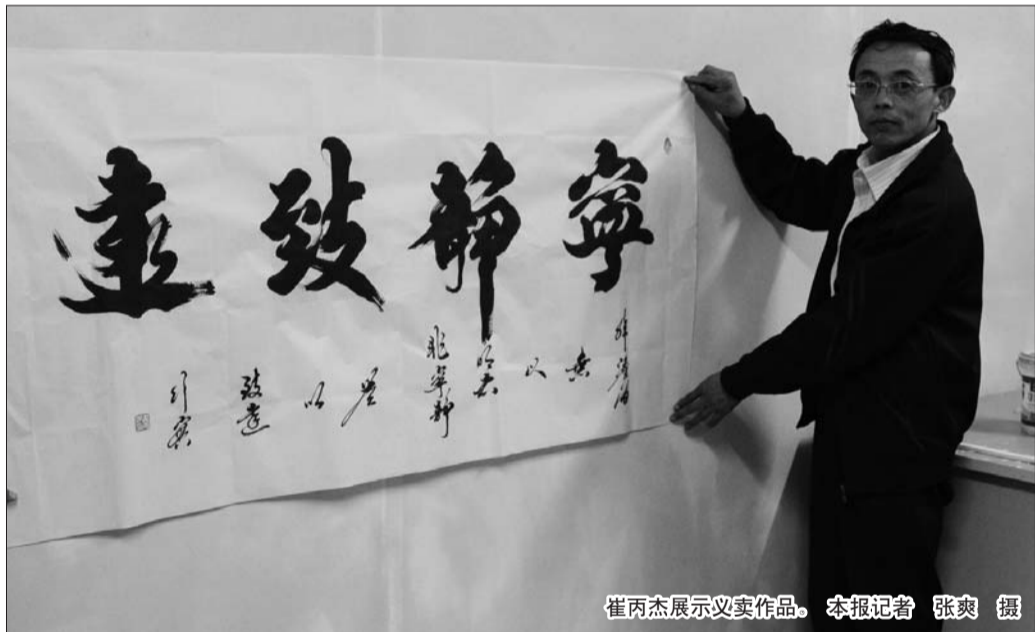 寧靜致遠
非淡泊
無
以
明志
非寧靜
無
以
致遠
行實
崔丙杰展示义卖作品。 本报记者 张爽 摄